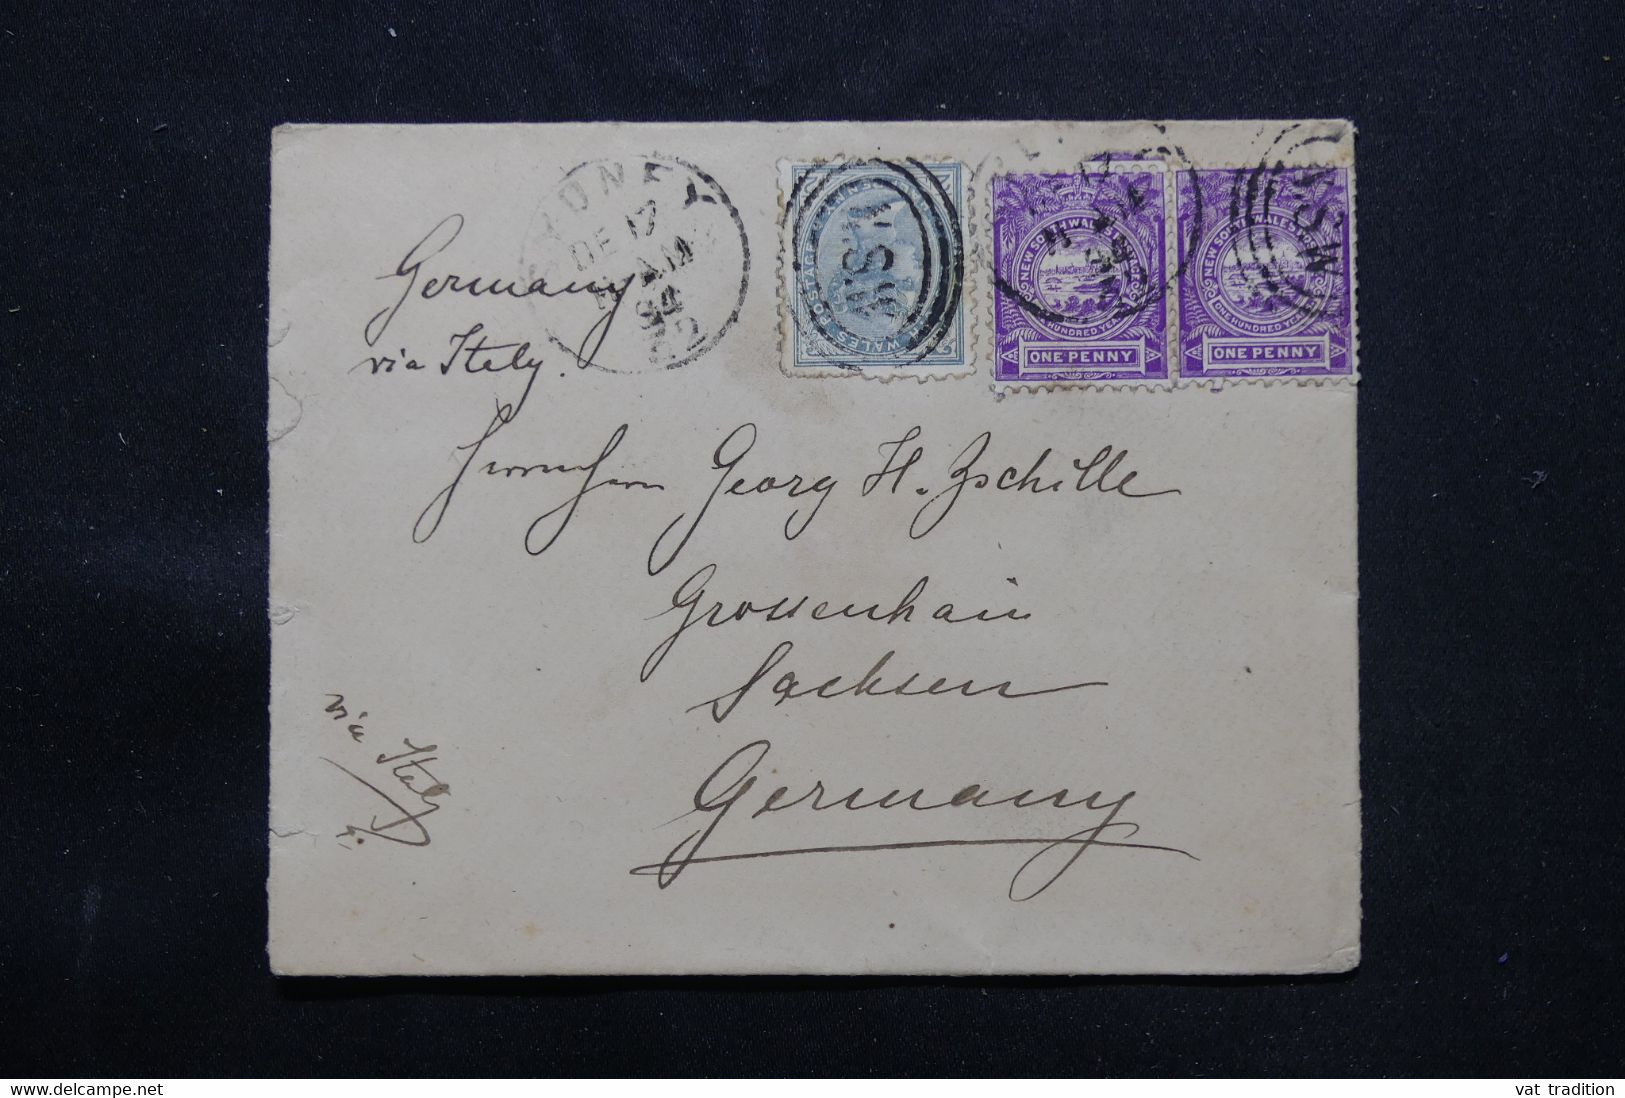 SYDNEY
DE 17
AM
92
N.S.W
POSTAGE
WALES
DE 17
NEW SOUTH WALES
ONE HUNDRED YEARS
ONE PENNY
NEW SOUTH WALES POSTAGE
ONE HUNDRED YEARS
ONE PENNY
N.S.W
Germany
via Italy.
Herrn Georg H. Zschille
Grossenhain
Sachsen
Germany
via Italy
www.delcampe.net
vat tradition